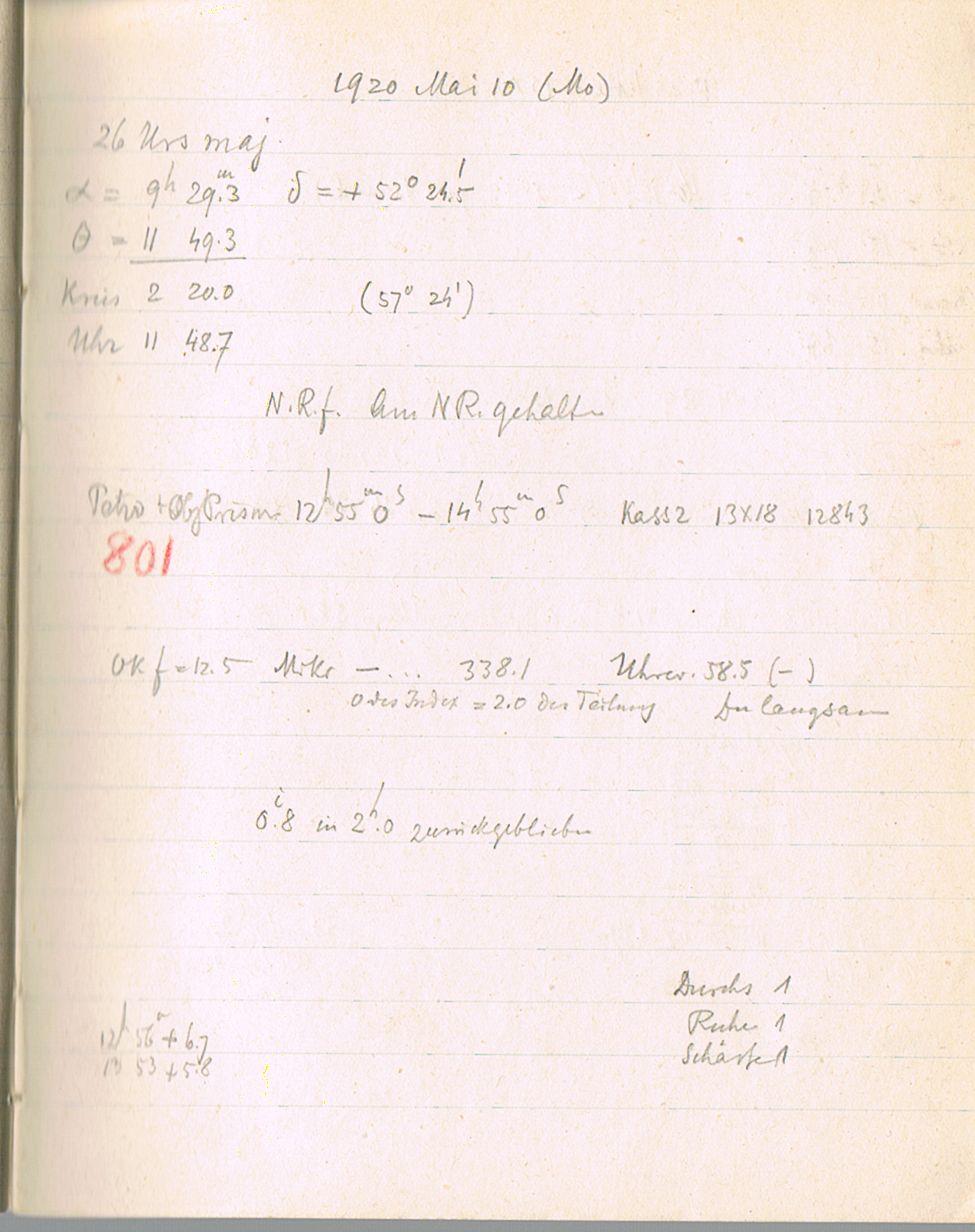 1920 Mai 10 (Mo)
26 Urs maj.
α = 9h 29.m3 δ = + 52° 24.'5
θ = 11 49.3
Kreis 2 20.0 (57° 24')
Uhr 11 48.7
N.R.f. Am NR. gehalten
Petzv + Obj Prisma 12h 55m 0s – 14h 55m 0s Kass 2 13X18 12843
801
OK f = 12.5 Mikr – ... 338.1 Uhrcor. 58.5 (–)
0 des Index = 2.0 der Teilung zu langsam
0.i8 in 2h.0 zurückgeblieben
Durchs 1
Ruhe 1
Schärfe 1
12h 56m + 6.7
13 53 + 5.8